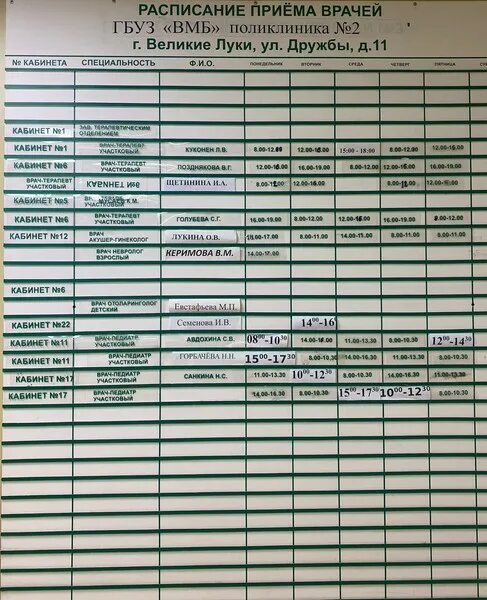 РАСПИСАНИЕ ПРИЁМА ВРАЧЕЙ
ГБУЗ «ВМБ» поликлиника №2
г. Великие Луки, ул. Дружбы, д.11
№ КАБИНЕТА СПЕЦИАЛЬНОСТЬ Ф.И.О. ПОНЕДЕЛЬНИК ВТОРНИК СРЕДА ЧЕТВЕРГ ПЯТНИЦА
КАБИНЕТ №1 ЗАВ. ТЕРАПЕВТИЧЕСКИМ ОТДЕЛЕНИЕМ
КАБИНЕТ №1 ВРАЧ-ТЕРАПЕВТ УЧАСТКОВЫЙ КУКОНЕН Л.В. 15:00-18:00 8.00-12.00
КАБИНЕТ №6 ВРАЧ-ТЕРАПЕВТ УЧАСТКОВЫЙ ПОЗДНЯКОВА В.Г. 16.00-19.00 8.00-12.00 16.00-19.00
ВРАЧ-ТЕРАПЕВТ УЧАСТКОВЫЙ ЩЕТИНИНА И.А.
КАБИНЕТ №5
КАБИНЕТ №6 ВРАЧ-ТЕРАПЕВТ УЧАСТКОВЫЙ ГОЛУБЕВА С.Г. 16.00-19.00 8.00-12.00 16.00-19.00 8.00-12.00
КАБИНЕТ №12 ВРАЧ АКУШЕР-ГИНЕКОЛОГ ЛУКИНА О.В. 8.00-11.00 8.00-11.00 8.00-11.00
ВРАЧ НЕВРОЛОГ ВЗРОСЛЫЙ КЕРИМОВА В.М. 14.00-17.00
КАБИНЕТ №6
ВРАЧ ОТОЛАРИНГОЛОГ ДЕТСКИЙ Евстафьева М.П.
КАБИНЕТ №22 Семенова И.В. 14⁰⁰-16
КАБИНЕТ №11 ВРАЧ-ПЕДИАТР УЧАСТКОВЫЙ АВДОХИНА С.В. 08⁰⁰-10³⁰ 11.00-13.30 8.00-10.30 12⁰⁰-14³⁰
КАБИНЕТ №11 ВРАЧ-ПЕДИАТР УЧАСТКОВЫЙ ГОРБАЧЁВА Н.Н. 15⁰⁰-17³⁰ 8.00-10.30 14.00-16.30 11.00-13.30 8.00-10.30
КАБИНЕТ №17 ВРАЧ-ПЕДИАТР УЧАСТКОВЫЙ САНКИНА Н.С. 11.00-13.30 10⁰⁰-12³⁰ 8.00-10.30 14.00-16.30
КАБИНЕТ №17 ВРАЧ-ПЕДИАТР УЧАСТКОВЫЙ 14.00-16.30 8.00-10.30 15⁰⁰-17³⁰ 10⁰⁰-12³⁰ 8.00-10.30